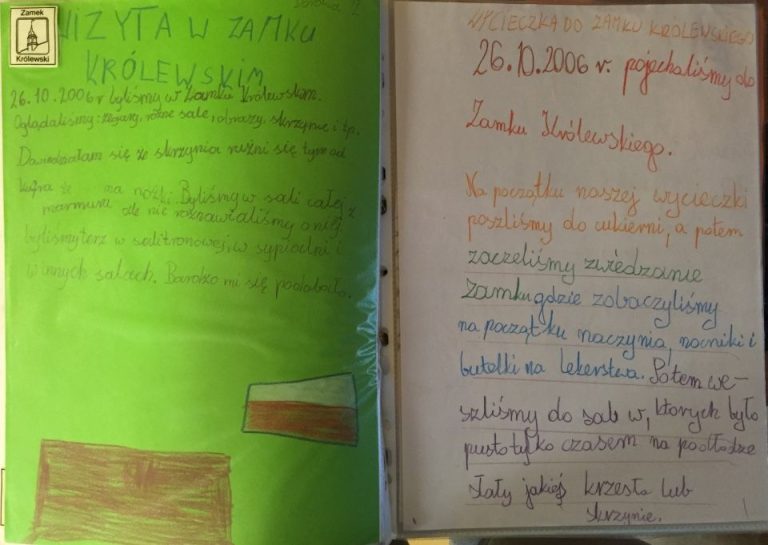 Zamek
Królewski
WIZYTA W ZAMKU
KRÓLEWSKIM
26.10.2006r byliśmy w Zamku Królewskim.
Oglądaliśmy: zegary, różne sale, obrazy, skrzynie i tp.
Dowiedziałam się że skrzynia rużni się tym od
kufra że ma nóżki. Byliśmy w sali całej z
marmuru ale nie rozmawialiśmy o niej,
byliśmy też w sali tronowej, w sypialni i
w innych salach. Bardzo mi się podobało.
WYCIECZKA DO ZAMKU KRÓLEWSKIEGO
26.10.2006 r. pojechaliśmy do
Zamku Królewskiego.
Na początku naszej wycieczki
poszliśmy do cukierni, a potem
zaczeliśmy zwiedzanie
Zamku gdzie zobaczyliśmy
na początku naczynia, nocniki i
butelki na lekarstwa. Potem we-
szliśmy do sal w, ktorych było
pusto tylko czasem na podłodze
stały jakieś krzesła lub
skrzynie.